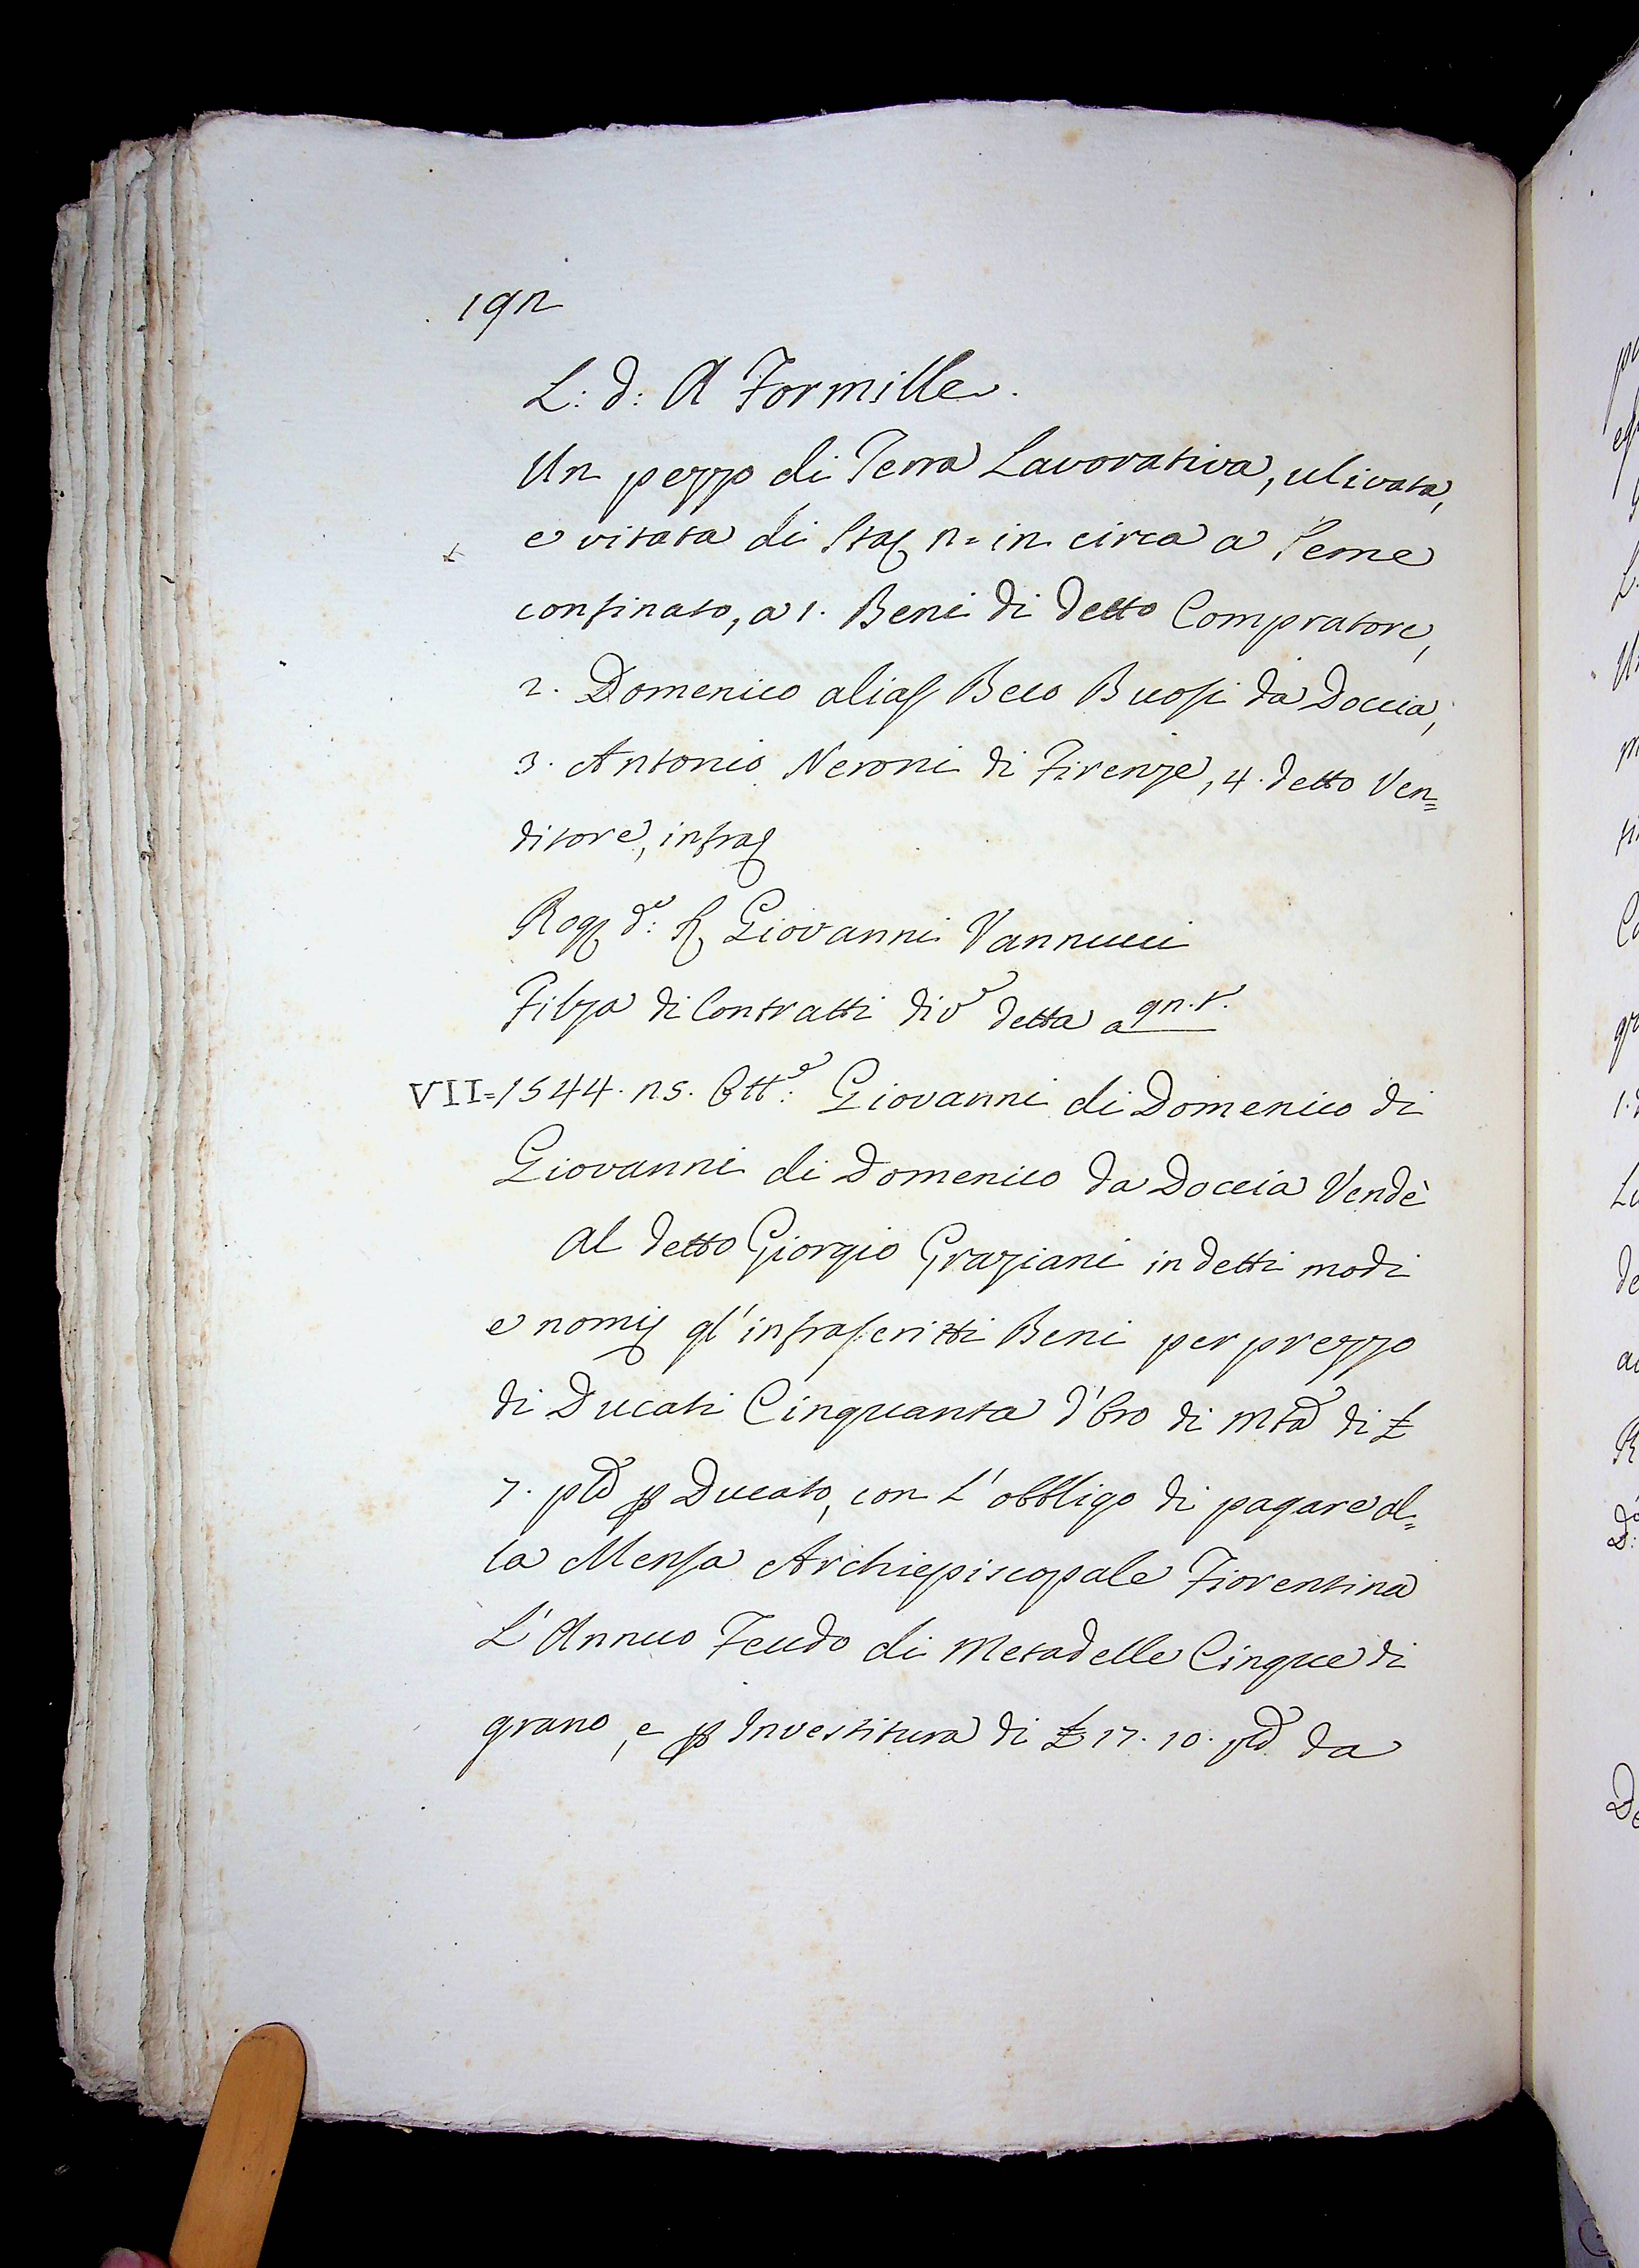 192
L: d: A Formille.
Un pezzo di Terra Lavorativa, ulivata,
e vitata di Staʃ 2= in circa a Seme
confinato, a 1. Beni di detto Compratore,
2. Domenico aliaʃ Beco Buoʃi da Doccia,
3. Antonio Neroni di Firenze, 4. detto Ven=
ditore, infraʃ
Rogʃ d.º Sʃ Giovanni Vannucci
Filza di Contratti div.ª detta a 92. t.
VII= 1544. 25. Ott.e Giovanni di Domenico di
Giovanni di Domenico da Doccia Vendè
al detto Giorgio Graziani in detti modi
e nomiʃ gl'infraʃcritti Beni per prezzo
di Ducati Cinquanta d'Oro di mta di £
7. pld p Ducato, con l'obbligo di pagare al=
la Menʃa Archiepiscopale Fiorentina
L'Annuo Feudo di Metadelle Cinque di
grano, e p Investitura di £ 17. 10. pld da